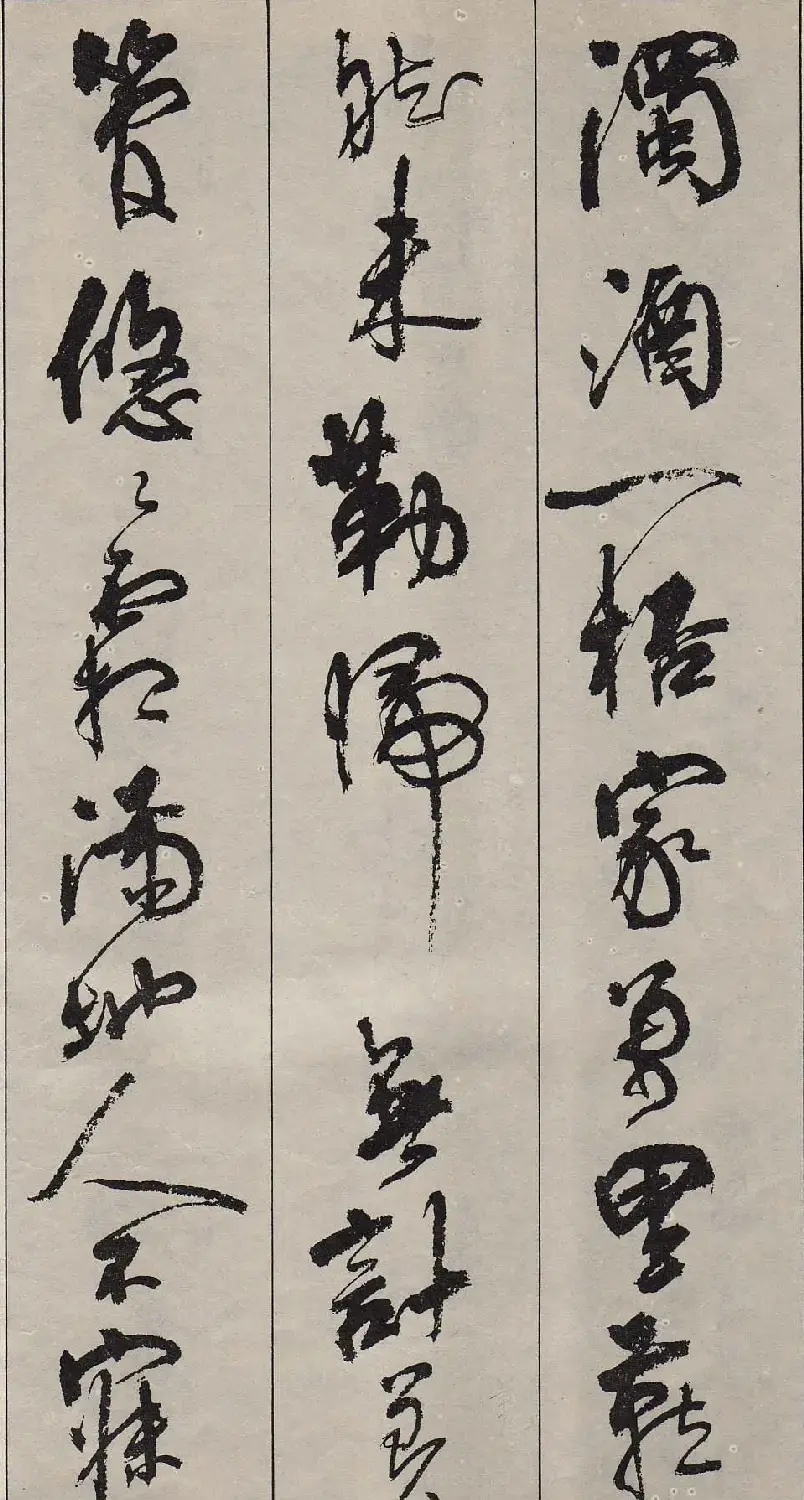 濁酒一桮家萬里燕
然未勒歸無計羌
管悠々霜滿地人不寐